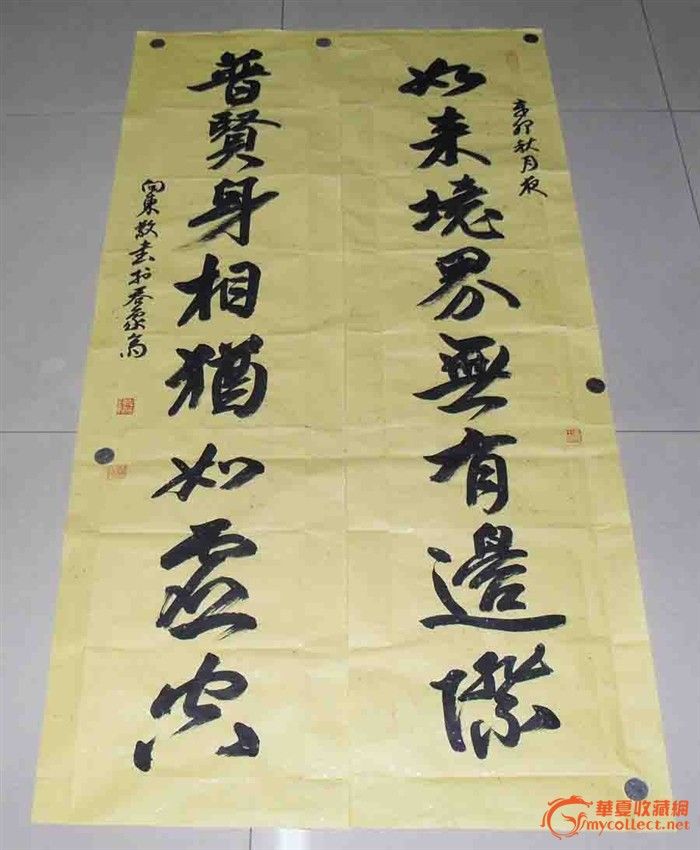 辛卯秋月夜
如来境界無有邊際
普賢身相猶如虚空
向東敬書於
華夏收藏網
mycollect.net